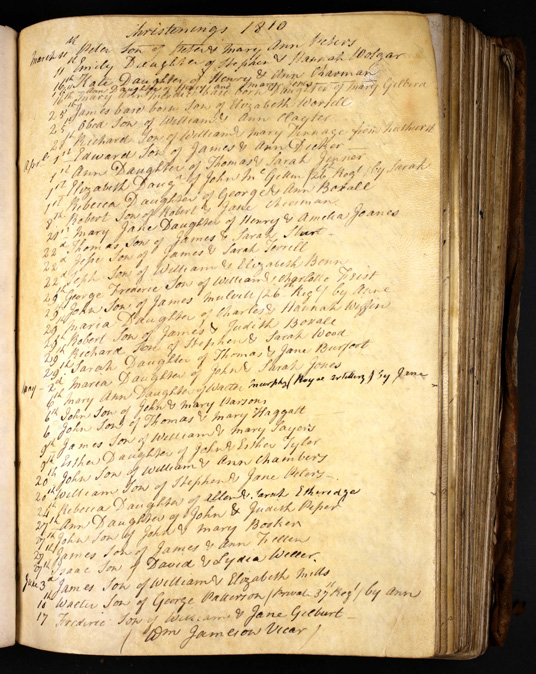 Christenings 1810
March 11th Peter Son of Peter & Mary Ann Peters
11th Emily Daughter of Stephen & Hannah Wolgar
16th Kate Daughter of Henry & Ann Chasman
Ann Daughter of Henry and Mary
18th Mary Daughter of Mary Gilbera
25th James base born Son of Elizabeth Worsell
25th Obed Son of William & Ann Clayter
25th Richard Son of William & Mary Tinnage from
April 1st Edward Son of James & Ann Decker
1st Ann Daughter of Thomas & Sarah Jenner
1st Elizabeth Daugr of John McGellin (26 Regt) by Sarah
1st Rebecca Daughter of George & Ann Boxall
8th Robert Son of Robert & Jane Cheesman
20th Mary Jane Daughter of Henry & Amelia Joanes
22d Thomas Son of James & Sarah Hurt
22d Jesse Son of James & Sarah Terrell
22d Seph Son of William & Elizabeth Bonn
29th George Frederic Son of William & Charlotte Frist
29th John Son of James Mulvill (26 Regt) by Anne
29th Maria Daughter of Charles & Hannah Wiffin
29th Robert Son of James & Judith Boxall
29th Richard Son of Stephen & Sarah Wood
29th Sarah Daughter of Thomas & Jane Burfort
May 2d Maria Daughter of John & Sarah Jones
6th Mary Ann Daughter of Walter Murphy (Royal Artillery) by Jane
6th John Son of John & Mary Harsons
6 John Son of Thomas & Mary Haggatt
9th James Son of William & Mary Sayers
9th Esther Daughter of John & Esther Tyler
20th John Son of William & Ann Chambers
20th William Son of Stephen & Jane Peters
24th Rebecca Daughter of Allen & Sarah Etheredge
27th Ann Daughter of John & Judith Peper
27th John Son of John & Mary Booker
27th James Son of James & Ann Fellen
27th Isaac Son of David & Lydia Weller
June 3d James Son of William & Elizabeth Mills
10 Walter Son of George Patterson (Private 37th Regt) by Ann
17 Frederic Son of William & Jane Gilburt
(Wm Jameson Vicar)